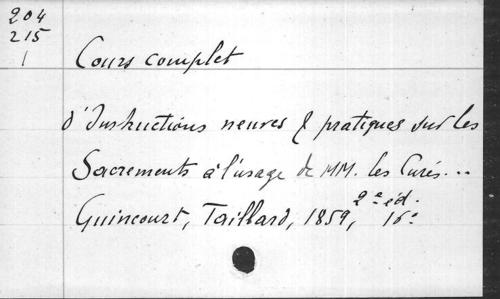 204
215
1
Cours complet
d'Instructions neuves & pratiques sur les
Sacrements à l'usage de MM. les Curés...
2e éd.
Guincourt, Taillard, 1859, 16°